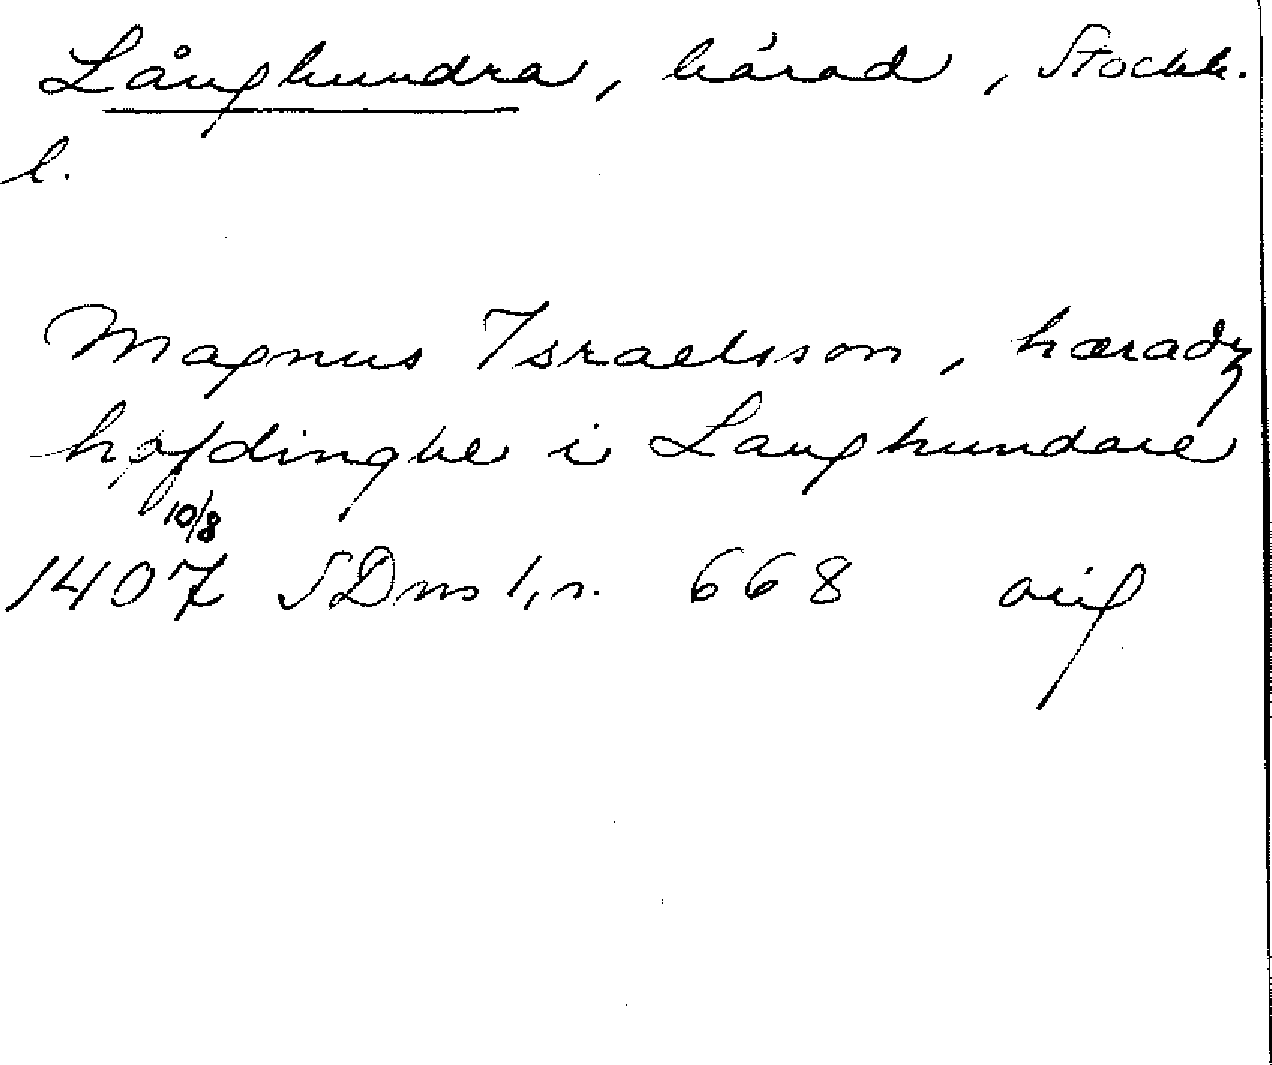 Långhundra, härad, Stockh.
l.
Magnus Israelsson, hæradz
høfdinghe i Langhundare
10/8
1407 SDns 1, n. 668 orig